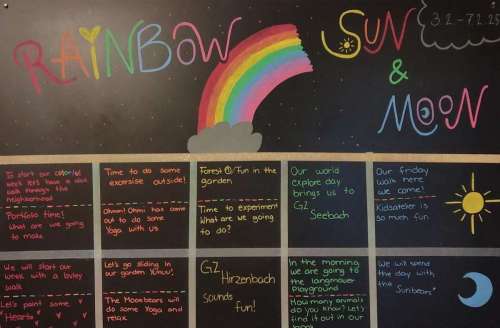 RAINBOW
SUN
&
MOON
3.2 - 7.2.25
To start our colorful
week let's have a nice
walk through the
neighborhood
Portfolio time!
What are we going
to make
Time to do some
excersise outside!
Ohmm! Ohmi has come
out to do some
Yoga with us
Forest /Fun in the
garden
Time to experiment
What are we going
to do?
Our world
explore day
brings us to
GZ
Seebach
Our friday
walk here
we come!
Kidsatelier is
so much fun
We will start our
week with a
walk
Let's paint some
Hearts
Let's go sliding in
our garden
The Moonbears will
do some Yoga and
relax
GZ
Hirzenbach
Sounds
fun!
In the morning
we are going to
the
playground
How many animals
do you know? Let's
find it out in our
We will spend
the day with
the
"Sunbears"